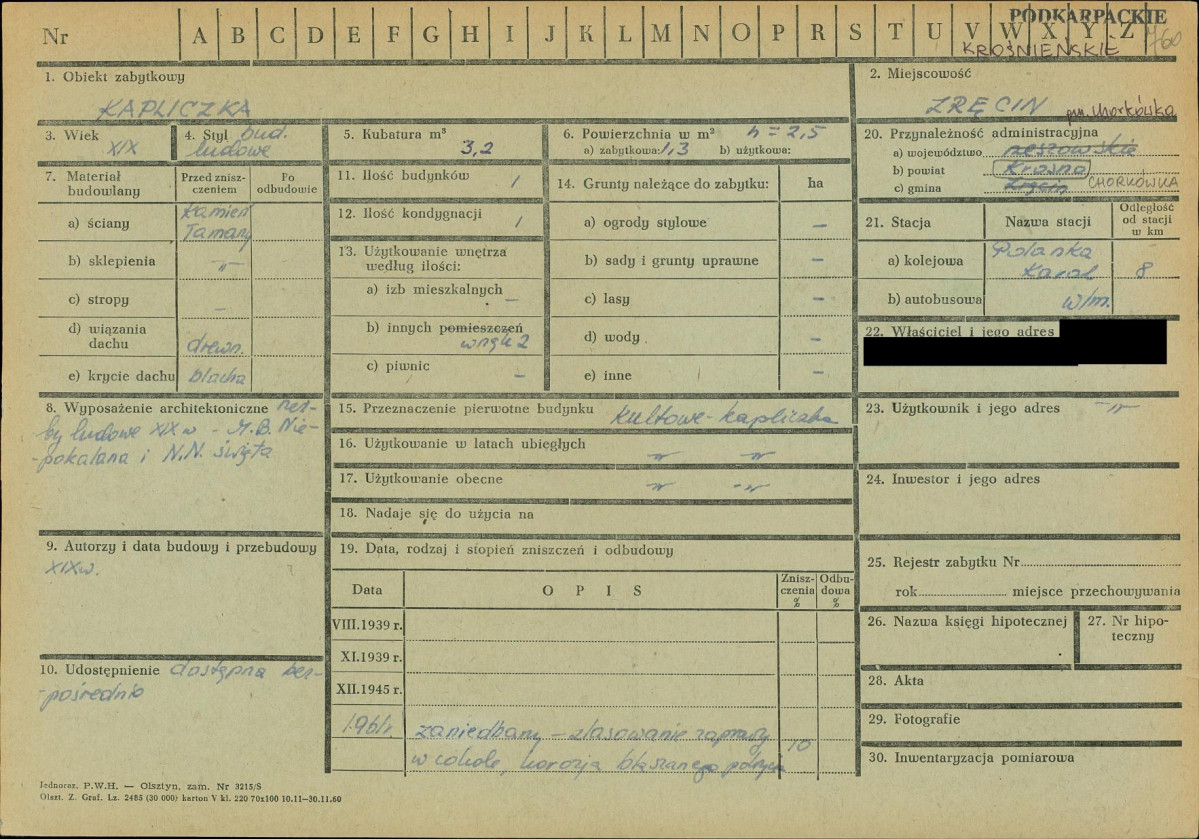 Nr A B C D E F G H I J K L M N O P R S T U V W X Y Z
PODKARPACKIE
KROŚNIEŃSKIE
760
1. Obiekt zabytkowy
KAPLICZKA
2. Miejscowość
ZRĘCIN gm. Chorkówka
3. Wiek
XIX
4. Styl bud.
ludowe
5. Kubatura m³
3,2
6. Powierzchnia w m² h = 2,5
a) zabytkowa: 1,3 b) użytkowa:
7. Materiał budowlany
Przed zniszczeniem
Po odbudowie
a) ściany
kamień
łamany
b) sklepienia -"-
c) stropy –
d) wiązania dachu drewn.
e) krycie dachu blacha
8. Wyposażenie architektoniczne rzeź-
by ludowe XIX w - M.B. Nie-
-pokalana i N.N. święta
9. Autorzy i data budowy i przebudowy
XIX w.
10. Udostępnienie dostępna bez-
-pośrednio
11. Ilość budynków 1
12. Ilość kondygnacji 1
13. Użytkowanie wnętrza według ilości:
a) izb mieszkalnych –
b) innych pomieszczeń
wnęk 2
c) piwnic –
14. Grunty należące do zabytku: ha
a) ogrody stylowe –
b) sady i grunty uprawne –
c) lasy –
d) wody –
e) inne –
15. Przeznaczenie pierwotne budynku kultowe - kapliczka
16. Użytkowanie w latach ubiegłych -"- -"-
17. Użytkowanie obecne -"- -"-
18. Nadaje się do użycia na
19. Data, rodzaj i stopień zniszczeń i odbudowy
Data O P I S Zniszczenia % Odbudowa %
VIII.1939 r.
XI.1939 r.
XII.1945 r.
1961r. zaniedbany – zlasowanie zaprawy
w cokole, korozja blaszanego pokrycia 10
20. Przynależność administracyjna
a) województwo rzeszowskie
b) powiat Krosno
c) gmina Zręcin CHORKÓWKA
21. Stacja Nazwa stacji Odległość od stacji w km
a) kolejowa Polanka
Karol 8
b) autobusowa w/m.
22. Właściciel i jego adres
23. Użytkownik i jego adres -"-
24. Inwestor i jego adres
25. Rejestr zabytku Nr
rok miejsce przechowywania
26. Nazwa księgi hipotecznej
27. Nr hipoteczny
28. Akta
29. Fotografie
30. Inwentaryzacja pomiarowa
Jednoraz. P.W.H. — Olsztyn, zam. Nr 3215/S
Olszt. Z. Graf. Lz. 2485 (30 000) karton V kl. 220 70x100 10.11—30.11.60